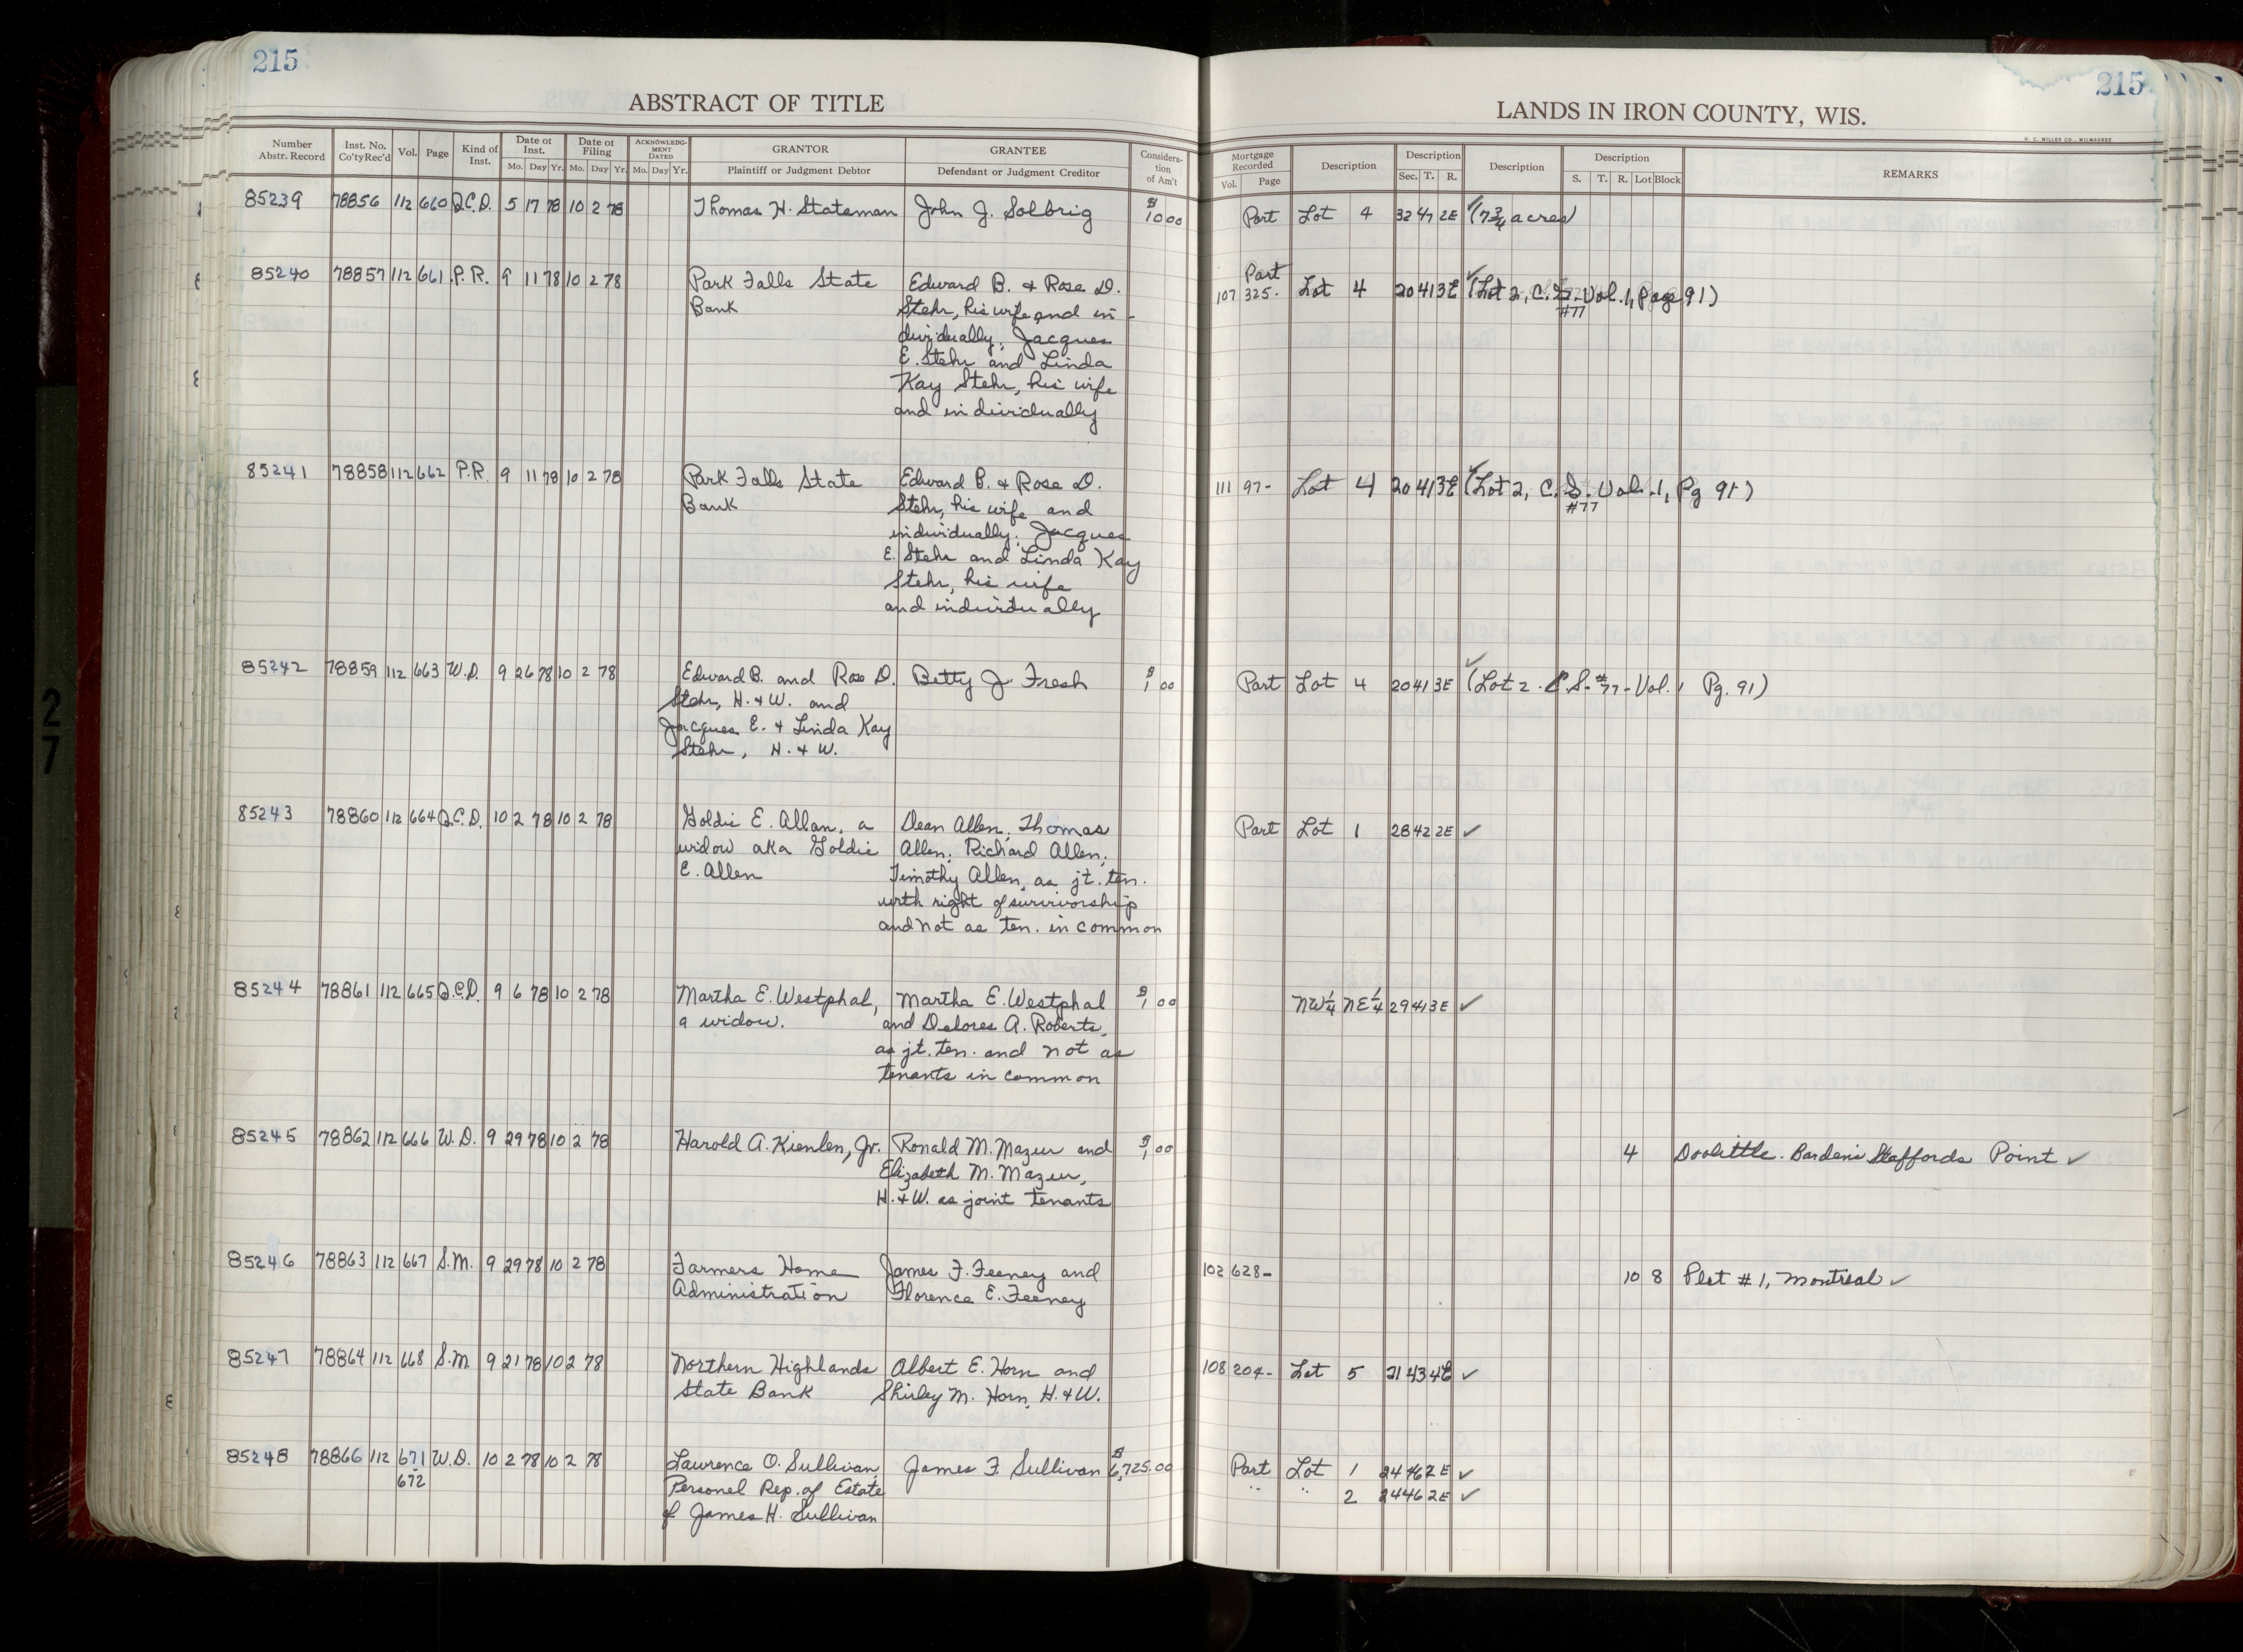 215
ABSTRACT OF TITLE
Number Abstr. Record
Inst. No. Co'ty Rec'd
Vol.
Page
Kind of Inst.
Date of Inst.
Mo. Day Yr.
Date of Filing
Mo. Day Yr.
ACKNOWLEDGMENT DATED
Mo. Day Yr.
GRANTOR
Plaintiff or Judgment Debtor
GRANTEE
Defendant or Judgment Creditor
Consideration of Am't
85239 78856 112 660 Q.C.D. 5 17 78 10 2 78 Thomas H. Stateman John J. Solbrig $ 10 00
85240 78857 112 661 P.R. 9 11 78 10 2 78 Park Falls State Edward B. & Rose D.
Bank Stehr, his wife and in-
dividually, Jacques
E. Stehr and Linda
Kay Stehr, his wife
and individually
85241 78858 112 662 P.R. 9 11 78 10 2 78 Park Falls State Edward B. & Rose D.
Bank Stehr, his wife and
individually, Jacques
E. Stehr and Linda Kay
Stehr, his wife
and individually
85242 78859 112 663 W.D. 9 26 78 10 2 78 Edward B. and Rose D. Betty J. Fresh $ 1 00
Stehr, H. & W. and
Jacques E. & Linda Kay
Stehr, H. & W.
85243 78860 112 664 Q.C.D. 10 2 78 10 2 78 Goldie E. Allan, a Dean Allen, Thomas
widow aka Goldie Allen, Richard Allen,
E. Allen Timothy Allen, as jt. ten.
with right of survivorship
and not as ten. in common
85244 78861 112 665 Q.C.D. 9 6 78 10 2 78 Martha E. Westphal, Martha E. Westphal $ 1 00
a widow. and Delores A. Roberts,
as jt. ten. and not as
tenants in common
85245 78862 112 666 W.D. 9 29 78 10 2 78 Harold A. Kienlen, Jr. Ronald M. Mazur and $ 1 00
Elizabeth M. Mazur,
H. & W. as joint tenants
85246 78863 112 667 S.M. 9 29 78 10 2 78 Farmers Home James F. Feeney and
Administration Florence E. Feeney
85247 78864 112 668 S.M. 9 21 78 10 2 78 Northern Highlands Albert E. Horn and
State Bank Shirley M. Horn, H. & W.
85248 78866 112 671 W.D. 10 2 78 10 2 78 Lawrence O. Sullivan, James F. Sullivan $ 6,725.00
672 Personel Rep. of Estate
of James H. Sullivan
215
LANDS IN IRON COUNTY, WIS.
H. C. MILLER CO., MILWAUKEE
Mortgage Recorded
Vol. Page
Description
Description
Sec. T. R.
Description
Description
S. T. R. Lot Block
REMARKS
Part Lot 4 32 47 2E ✓ (7 3/4 acres)
Part
107 325- Lot 4 20 41 3E ✓ (Lot 2, C.S. - Vol. 1, Page 91)
#77
111 97- Lot 4 20 41 3E ✓ (Lot 2, C.S. Vol. 1, Pg 91)
#77
Part Lot 4 20 41 3E ✓ (Lot 2 - C.S. #77 - Vol. 1 Pg. 91)
Part Lot 1 28 42 2E ✓
NW 1/4 NE 1/4 29 41 3E ✓
4 Doolittle-Bardens Staffords Point ✓
102 628- 10 8 Plat #1, Montreal ✓
108 204- Lot 5 21 43 4E ✓
Part Lot 1 24 46 2E ✓
" " 2 24 46 2E ✓
27